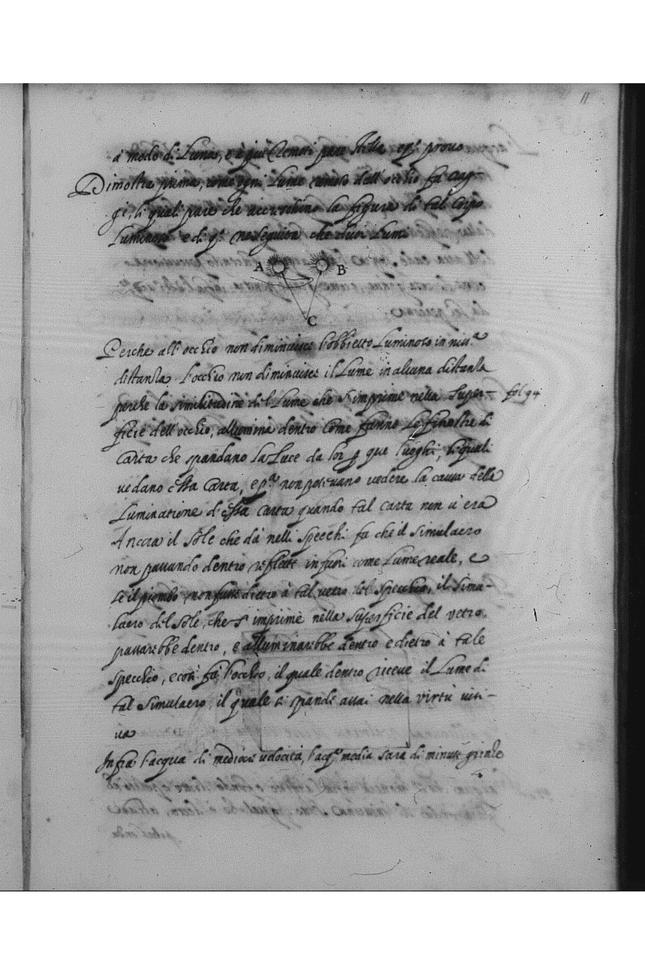 11
à modo di Lume, e à quel
Dimostra prima, come ogni Lume remoto dall' occhio fa
gi, li quali pare che accreschino la figura di tal Corpo
Luminoso e di q.º ne seguita che
A B
C
Perche all' occhio non diminuisce l'obbietto Luminoso in
distanza l'occhio non diminuisce il Lume in alcuna distanza
perche la similitudine del Lume che s'imprime nella super-
fol 94
ficie dell' occhio, allumina dentro come fanno le finestre di
Carta che spandano la Luce da lor p que luoghi, li quali
vedano essa Carta, e p.ª non potevano vedere la causa della
Luminatione di essa Carta quando tal carta non v'era
Ancora il Sole che dà nelli specchi fa che il simulacro
non passando dentro reflette in fuori come Lume reale, e
se il piombo non fusse dietro à tal vetro del specchio, il simu-
lacro del Sole, che s'imprime nella superficie del vetro
passarebbe dentro, e alluminarebbe dentro e dietro à tale
specchio, e così fa l'occhio, il quale dentro riceve il Lume di
tal simulacro, il quale si spande assai nella virtù visi-
va
Infra l'acqua di mediocre velocità, l'acq.ª media sarà di minute